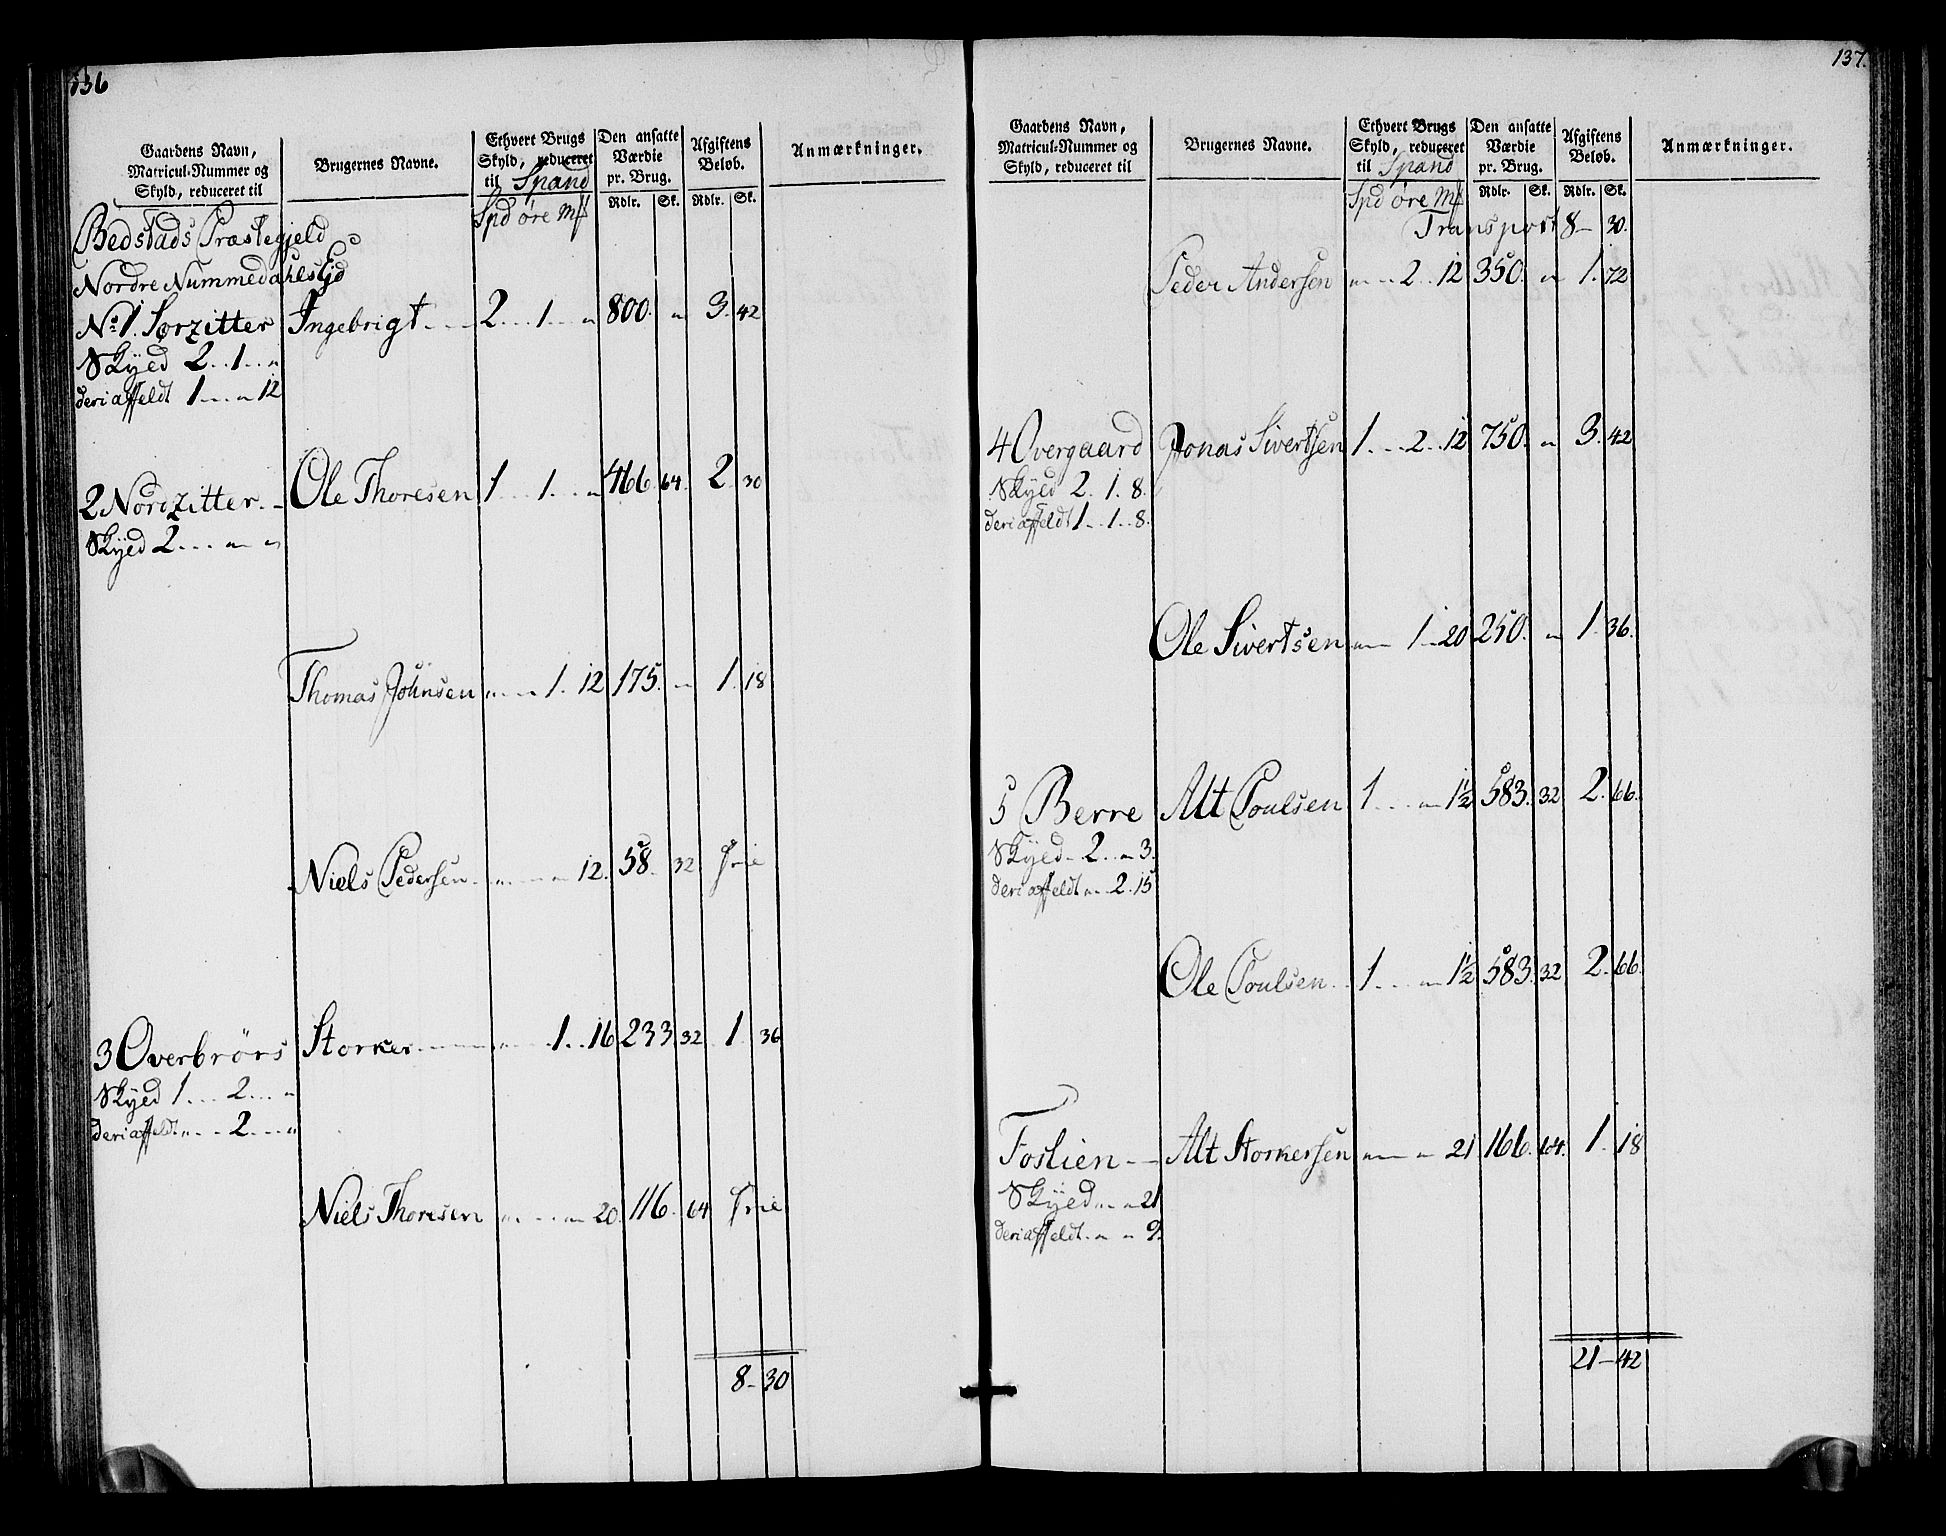 136
Gaardens Navn, Matricul-Nummer og Skyld, reduceret til
Brugernes Navne.
Ethvert Brugs Skyld, reduceret til Spand
Den ansatte Værdie pr. Brug.
Afgiftens Beløb.
Anmærkninger.
Spd øre Mk
Rdlr. Sk. Rdlr. Sk.
Bedstads Præstegjeld
Nordre Nummedahls
No 1. Sørzitter Ingebrigt 2 . . 1 . . " 800. " 3. 42
Skyld 2 . . 1 . . "
deri affeldt 1 . . " 12
2 Nordzitter Ole Thoresen 1 . . 1 . . " 466. 64. 2 30
Skyld 2 . . " "
Thomas Johnsen " . . 1. 12 175. " 1. 18
Niels Pedersen " . . " 12. 58. 32 Frie
3 Overbrörs Storker " . . 1 . . 16 233. 32 1. 36
Skyld 1 . . 2 . . "
deri affeldt " . . 2 . . "
Niels Thoresen " . . " 20. 116. 64 Frie
8 – 30
137.
Gaardens Navn, Matricul-Nummer og Skyld, reduceret til
Brugernes Navne.
Ethvert Brugs Skyld, reduceret til Spand
Den ansatte Værdie pr. Brug.
Afgiftens Beløb.
Anmærkninger.
Spd øre Mk
Rdlr. Sk. Rdlr. Sk.
Transport 8 – 30.
Peder Andersen " . . 2 . . 12 350. " 1. 72
4 Overgaard Jonas Sivertsen 1 . . 2 . . 12 750. " 3. 42
Skyld 2. 1. 8.
deri affeldt 1 . . 1 . . 8.
Ole Sivertsen " . . 1 . . 20 250. " 1. 36.
5 Berre Alt Poulsen 1 . . " 1½ 583. 32 2. 66.
Skyld . . 2 . . " 3.
deri affeldt " . . 2. 15
Ole Poulsen 1 . . " 1½ 583. 32 2. 66.
Foslien Alt Storkersen " . . " 21 166. 64. 1. 18
Skyld " . . " 21
deri affeldt " . . " 9.
21 – 42